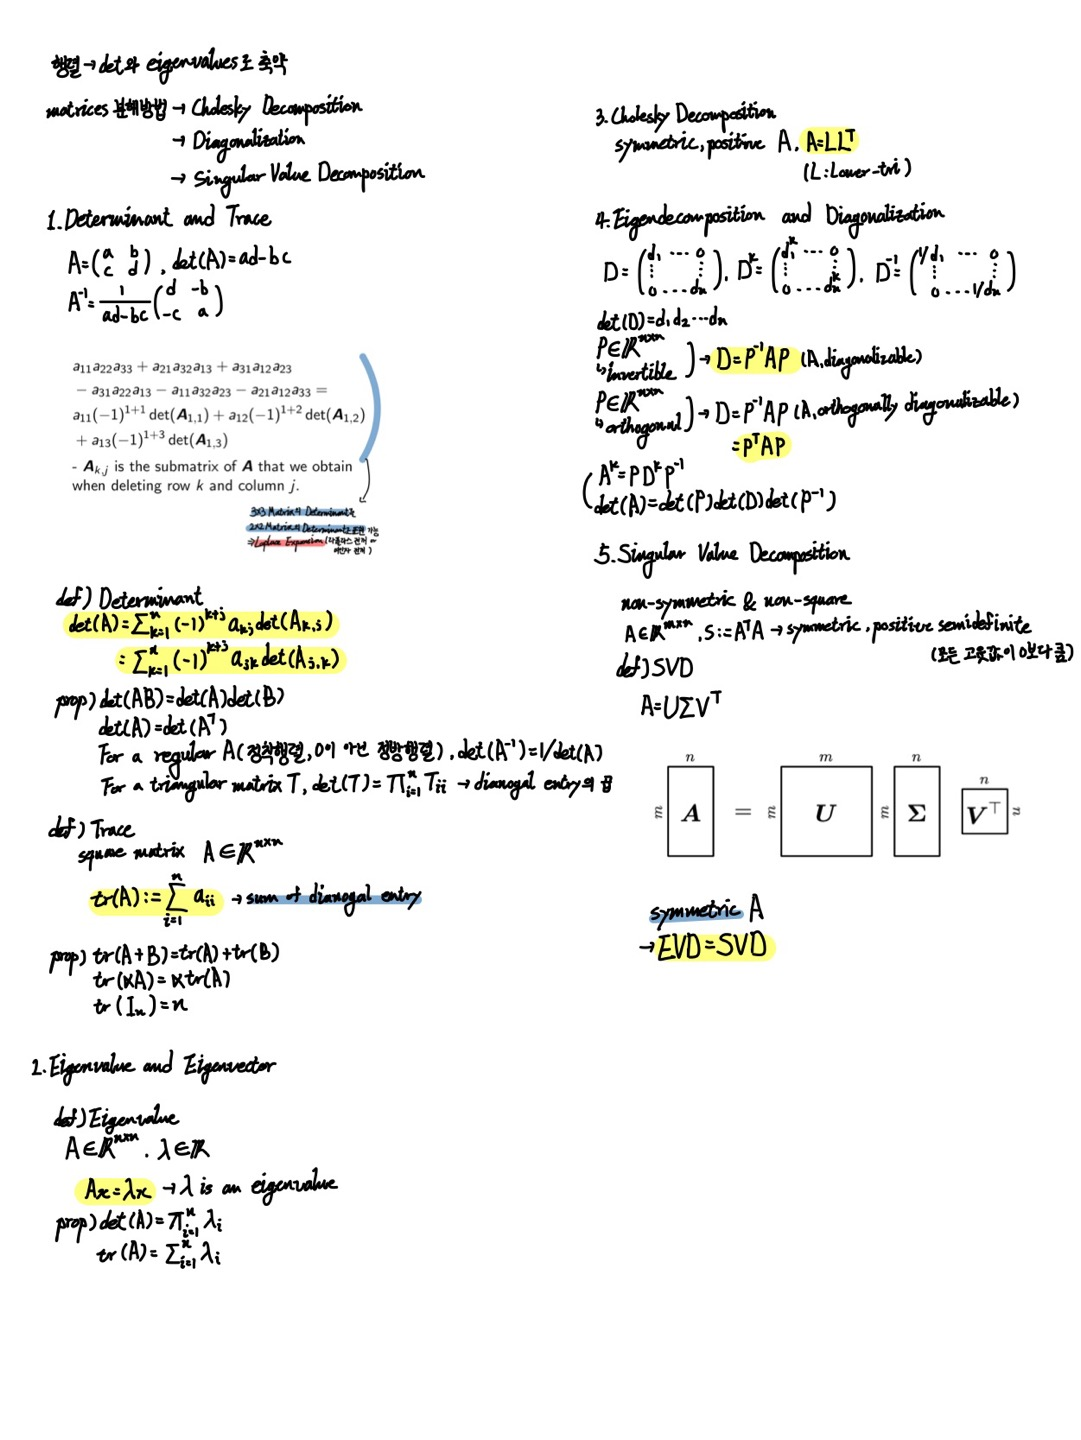 행렬→det와 eigenvalues로 축약
matrices 분해방법→ Cholesky Decomposition
→ Diagonalization
→ Singular Value Decomposition
1. Determinant and Trace
A=(a b
c d), det(A)=ad-bc
A⁻¹= 1/(ad-bc) (d -b
-c a)
a₁₁a₂₂a₃₃ + a₂₁a₃₂a₁₃ + a₃₁a₁₂a₂₃
− a₃₁a₂₂a₁₃ − a₁₁a₃₂a₂₃ − a₂₁a₁₂a₃₃ =
a₁₁(−1)¹⁺¹ det(A₁,₁) + a₁₂(−1)¹⁺² det(A₁,₂)
+ a₁₃(−1)¹⁺³ det(A₁,₃)
- Aₖ,ⱼ is the submatrix of A that we obtain
when deleting row k and column j.
3x3 Matrix의 Determinant를
2x2 Matrix의 Determinant로 표현 가능
⇒Laplace Expansion (라플라스 전개 =
여인자 전개)
def) Determinant
det(A)=∑ₖ₌₁ⁿ (-1)ᵏ⁺ʲ aₖⱼ det(Aₖ,ⱼ)
=∑ₖ₌₁ⁿ (-1)ᵏ⁺ʲ aⱼₖ det(Aⱼ,ₖ)
prop) det(AB)=det(A)det(B)
det(A)=det(Aᵀ)
For a regular A(정칙행렬, 0이 아닌 정방행렬), det(A⁻¹)=1/det(A)
For a triangular matrix T, det(T)=∏ᵢ₌₁ⁿ Tᵢᵢ → dianogal entry의 곱
def) Trace
square matrix A∈ℝⁿˣⁿ
tr(A):=∑ᵢ₌₁ⁿ aᵢᵢ → sum of dianogal entry
prop) tr(A+B)=tr(A)+tr(B)
tr(αA)=αtr(A)
tr(Iₙ)=n
2. Eigenvalue and Eigenvector
def) Eigenvalue
A∈ℝⁿˣⁿ. λ∈ℝ
Ax=λx → λ is an eigenvalue
prop) det(A)=∏ᵢ₌₁ⁿ λᵢ
tr(A)=∑ᵢ₌₁ⁿ λᵢ
3. Cholesky Decomposition
symmetric, positive A, A=LLᵀ
(L:Lower-tri)
4. Eigendecomposition and Diagonalization
D=(d₁ ⋯ 0
⋮ ⋮
0 ⋯ dₙ), Dᵏ=(d₁ᵏ ⋯ 0
⋮ ⋮
0 ⋯ dₙᵏ), D⁻¹=(1/d₁ ⋯ 0
⋮ ⋮
0 ⋯ 1/dₙ)
det(D)=d₁d₂⋯dₙ
P∈ℝⁿˣⁿ
↳invertible ) → D=P⁻¹AP (A, diagonalizable)
P∈ℝⁿˣⁿ
↳orthogonal ) → D=P⁻¹AP (A, orthogonally diagonalizable)
=PᵀAP
Aᵏ=PDᵏP⁻¹
det(A)=det(P)det(D)det(P⁻¹)
5. Singular Value Decomposition
non-symmetric & non-square
A∈ℝᵐˣⁿ, S:=AᵀA → symmetric, positive semidefinite
(모든 고윳값이 0보다 큼)
def) SVD
A=UΣVᵀ
n m n n
m A = m U m Σ V⊤ n
symmetric A
→ EVD=SVD